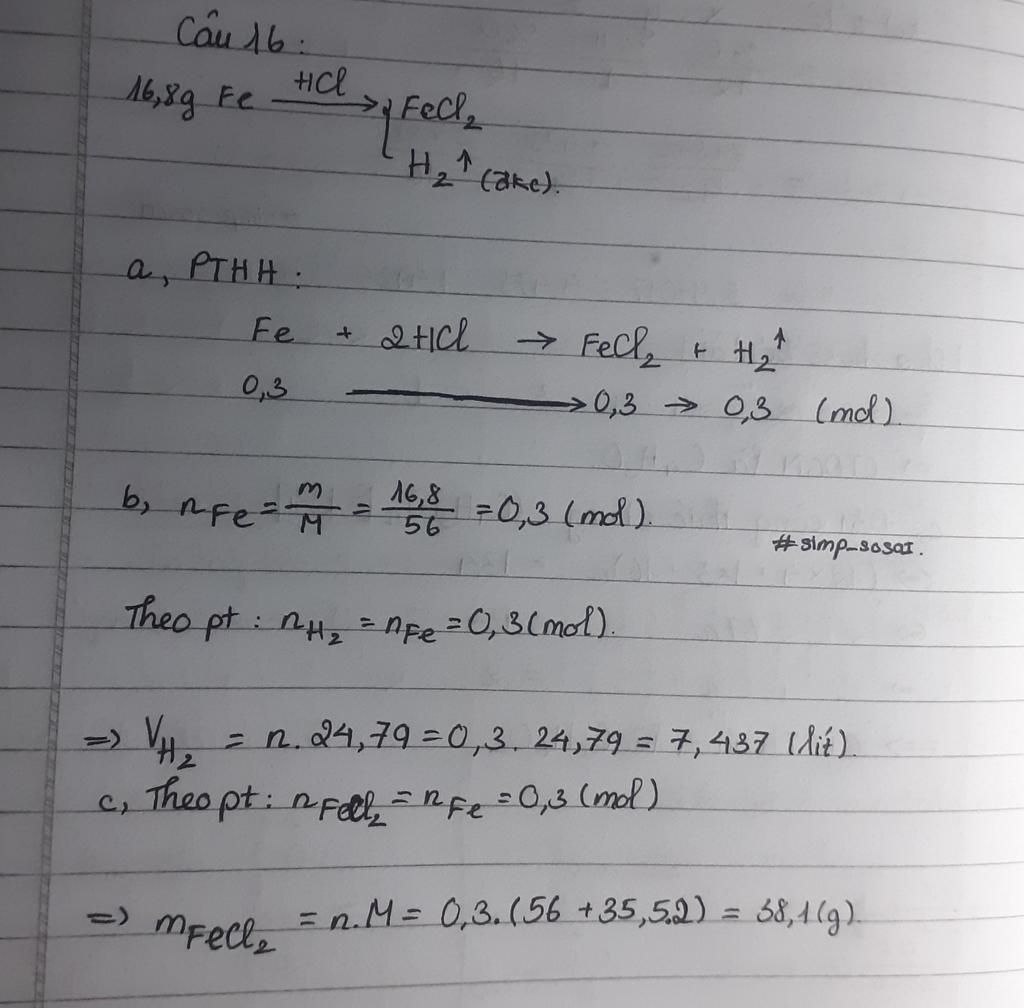 Câu 16:
16,8g Fe HCl → { FeCl₂
H₂↑ (đkc).
a, PTHH:
Fe + 2HCl → FeCl₂ + H₂↑
0,3 → 0,3 → 0,3 (mol).
b, nFe = m/M = 16,8/56 = 0,3 (mol).
#simp_sosai.
Theo pt: nH₂ = nFe = 0,3 (mol).
=> VH₂ = n. 24,79 = 0,3. 24,79 = 7,437 (lít).
c, Theo pt: nFeCl₂ = nFe = 0,3 (mol)
=> mFeCl₂ = n.M = 0,3.(56 + 35,5.2) = 38,1 (g).